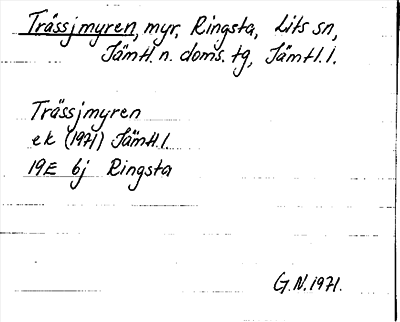 Trässjmyren, myr, Ringsta, Lits sn,
Jämtl. n. doms. tg, Jämtl. l.
Trässjmyren
ek (1971) Jämtl l.
19E 6j Ringsta
G.N. 1971.